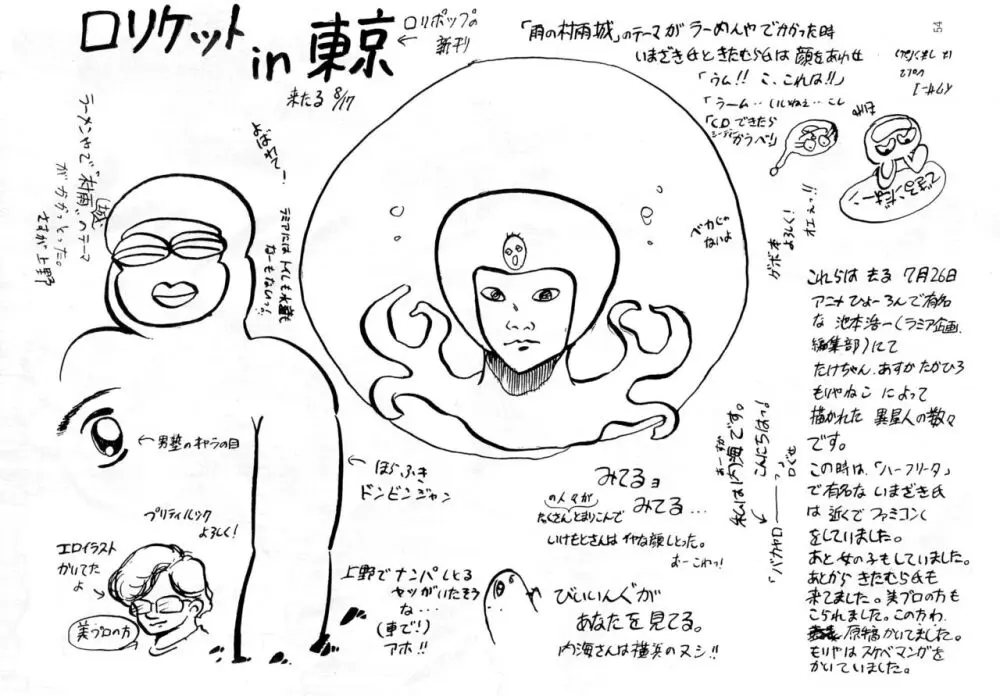 ロリケット
in 東京
ロリポップの
新刊
来たる 8/17
「雨の村雨城」のテーマが ラーめんやでかかった時
いまざき氏と きたむら氏は 顔をあわせ
「うム!! こ、これは!!」
「ラーム‥いいねえ‥こし
「CDできたら
シーディー
かうべ!」
54
ラーメンやで"村雨城"のテーマ
がかかっとった。
さすが上野
よばれてー
ラミアには トイレも水道も
なーもないっ!
べかじゃ
ないよ
ゲボ本
よろしく!
オエェっ!!
できるンだなーン
←男塾のキャラの目
ほらふき
ドンビンジャン
プリティルック
よろしく!
エロイラスト
かいてた
よ
美プロの方
上野でナンパしとる
ヤツがいたそう
な‥‥
(車で!)
アホ!!
みてるョ
みてる…
の人々が
たくさんとまりこんで
いけもとさんは イヤな顔しとった。
おーこわっ!
びいいんぐが
あなたを見てる。
内海さんは横浜のヌシ!!
私は内海です。
こんにちはっ。
これらは 去る 7月26日
アニメひょーろんで有名
な 池本浩一(ラミア企画
編集部)にて
たけちゃん、あすかたかひろ
もりやねこ によって
描かれた 異星人の数々
です。
この時は、「ハーフリータ」
で有名な いまざき氏
は 近くで ファミコンく
をしていました。
あと女の子もしていました。
あとから きたむら氏も
来てました。美プロの方も
こられました。この方わ
原稿かいてました。
もりやはスケベマンガを
かいていました。